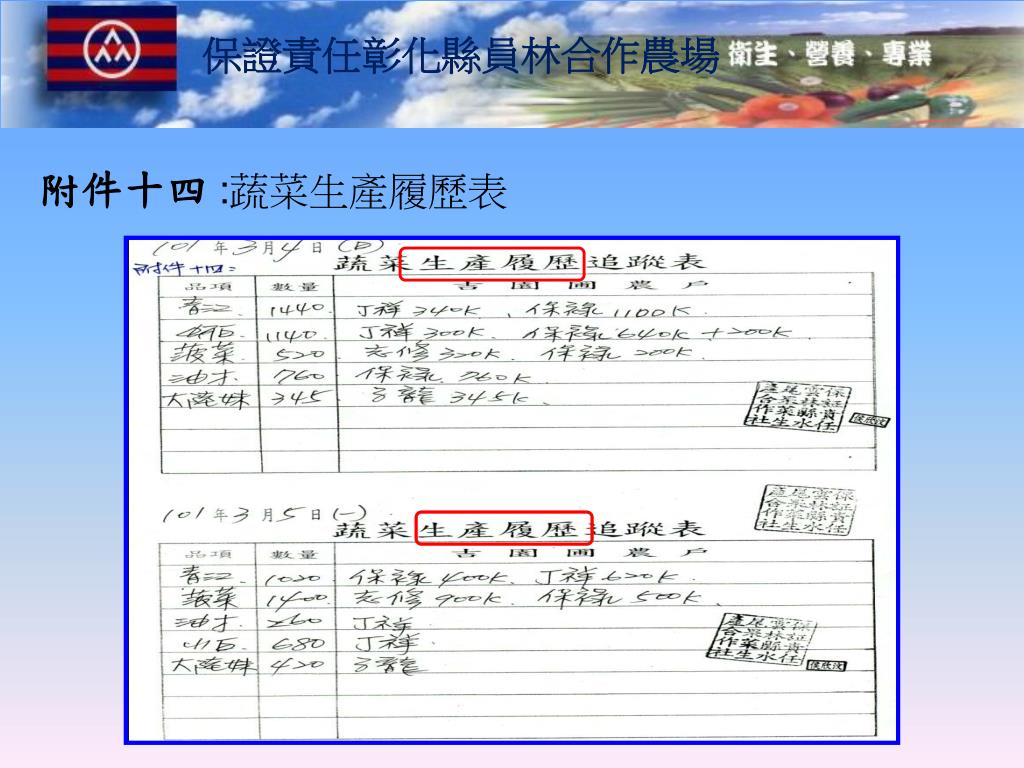 保證責任彰化縣員林合作農場 衛生、營養、專業
附件十四 :蔬菜生產履歷表
101年3月4日(日)
附件十四:
蔬菜生產履歷追蹤表
品項 數量 吉園圃農戶
青江. 1440. 丁祥 340K、保祿 1100K.
1140. 丁祥 300K. 保祿 640K + 200K
菠菜. 520. 志修 320K. 保祿 200K.
油才. 760 保祿. 760K.
大陸妹 345 子龍 345K.
101年3月5日(一)
蔬菜生產履歷追蹤表
品項 數量 吉園圃農戶
青江. 1020 保祿 400K. 丁祥 620K.
菠菜 1400. 志修 900K. 保祿 500K.
油才. 260 丁祥.
小白. 680 丁祥.
大陸妹 420 子龍